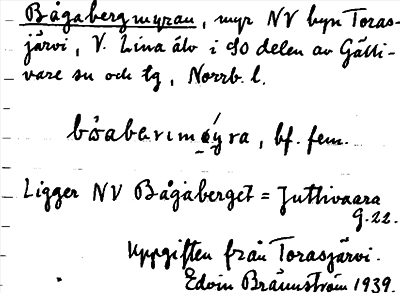 Bågabergmyran, myr NV byn Toras-
järvi, V. Lina älv i SO delen av Gälli-
vare sn och tg, Norrb. l.
bóaberımøýra, bf. fem.
Ligger NV Bågaberget = Juttivaara
G.22.
Uppgiften från Torasjärvi.
Edvin Brännström 1939.